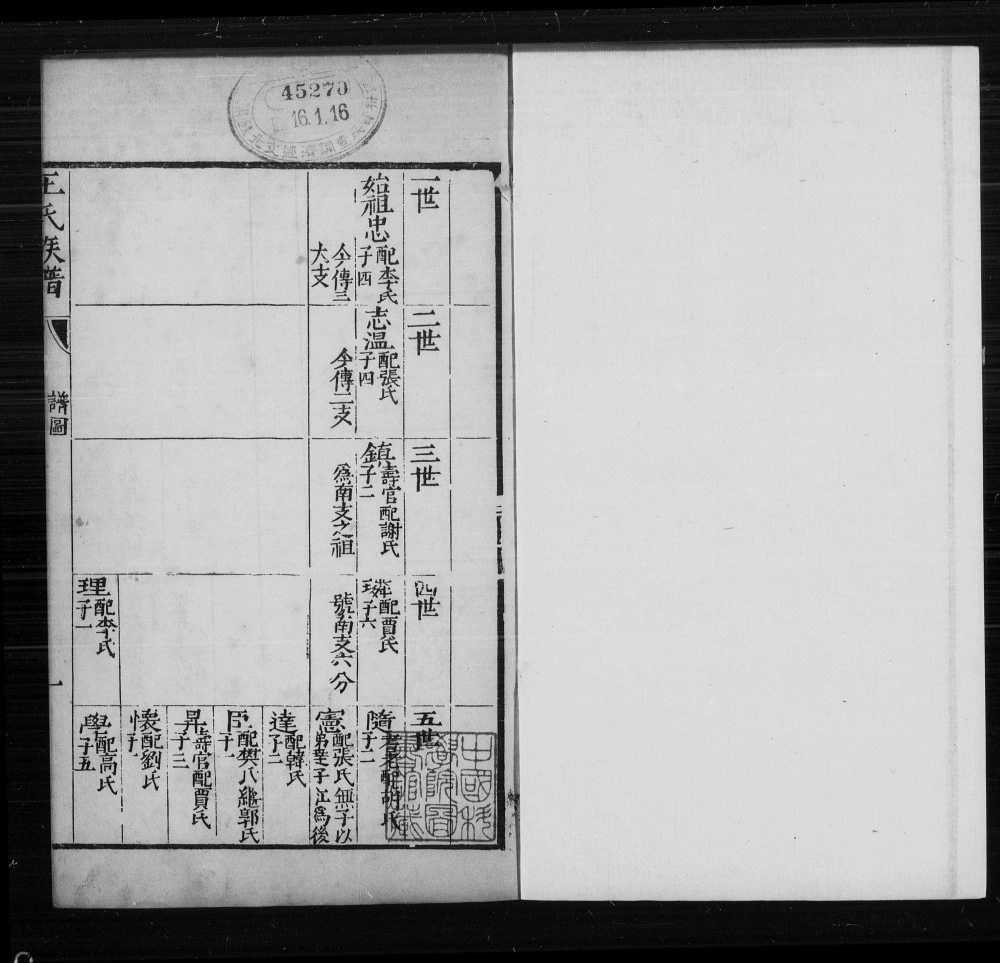 45270
16.1.16
一世
始祖忠
配李氏
子四
今傳三
大支
二世
志溫
配張氏
子四
今傳二支
三世
鎮
壽官配謝氏
子二
爲南支之祖
四世
璘
配賈氏
子六
號南支六分
理
配李氏
子一
五世
隋
配胡氏
子二
憲
配張氏無子以
弟達子江爲後
達
配韓氏
子二
臣
配樊氏繼郭氏
子一
昇
壽官配賈氏
子三
懷
配劉氏
子一
學
配高氏
子五
王氏族譜
譜圖
一
中國科
學院圖
書館藏